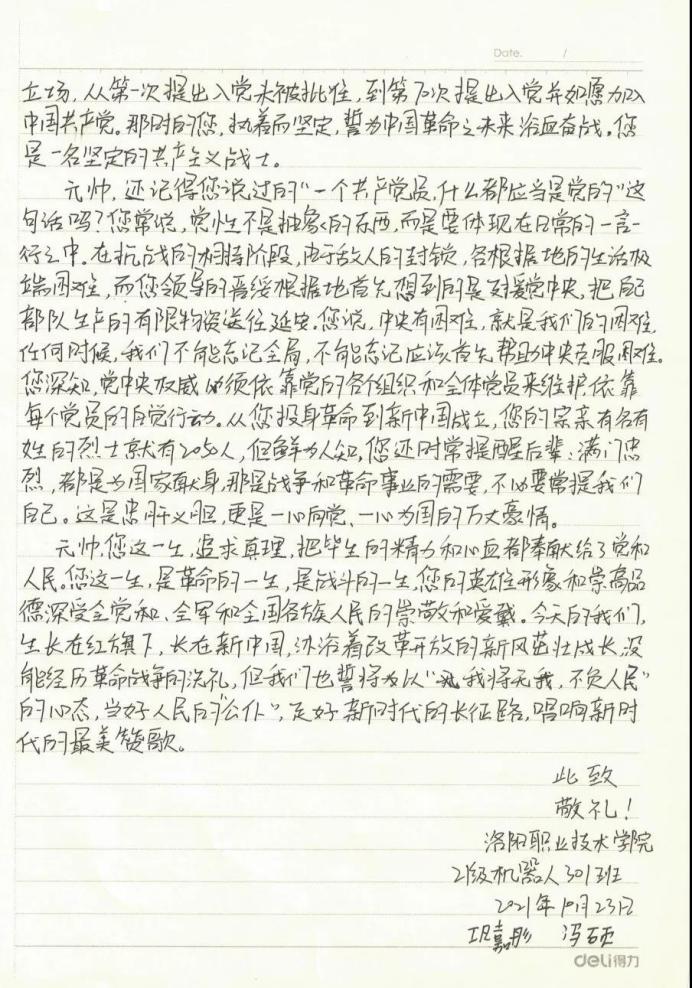 Date. /
立场，从第一次提出入党未被批准，到第70次提出入党并如愿加入
中国共产党。那时的您，执着而坚定，誓为中国革命之未来浴血奋战。您
是一名坚定的共产主义战士。
元帅，还记得您说过的“一个共产党员，什么都应当是党的”这
句话吗？您常说，党性不是抽象的东西，而是要体现在日常的一言一
行之中。在抗战的相持阶段，由于敌人的封锁，各根据地的生活极
端困难，而您领导的晋绥根据地首先想到的是支援党中央，把自己
部队生产的有限物资送往延安。您说，中央有困难，就是我们的困难，
任何时候，我们不能忘记全局，不能忘记应该首先帮助中央克服困难。
您深知，党中央权威必须依靠党的各个组织和全体党员来维护，依靠
每个党员的自觉行动。从您投身革命到新中国成立，您的宗亲有名有
姓的烈士就有2050人，但鲜为人知，您还时常提醒后辈：满门忠
烈，都是为国家献身，那是战争和革命事业的需要，不必要常提我们
自己。这是忠肝义胆，更是一心向党、一心为国的万丈豪情。
元帅，您这一生，追求真理，把毕生的精力和心血都奉献给了党和
人民。您这一生，是革命的一生，是战斗的一生，您的英雄形象和崇高品
德深受全党和、全军和全国各族人民的崇敬和爱戴。今天的我们，
生长在红旗下，长在新中国，沐浴着改革开放的新风茁壮成长，没
能经历革命战争的洗礼，但我们也誓将以“我将无我，不负人民”
的心态，当好人民的“公仆”，走好新时代的长征路，唱响新时
代的最美赞歌。
此致
敬礼！
洛阳职业技术学院
21级机器人301班
2021年10月23日
嘉彤 冯硕
deli得力